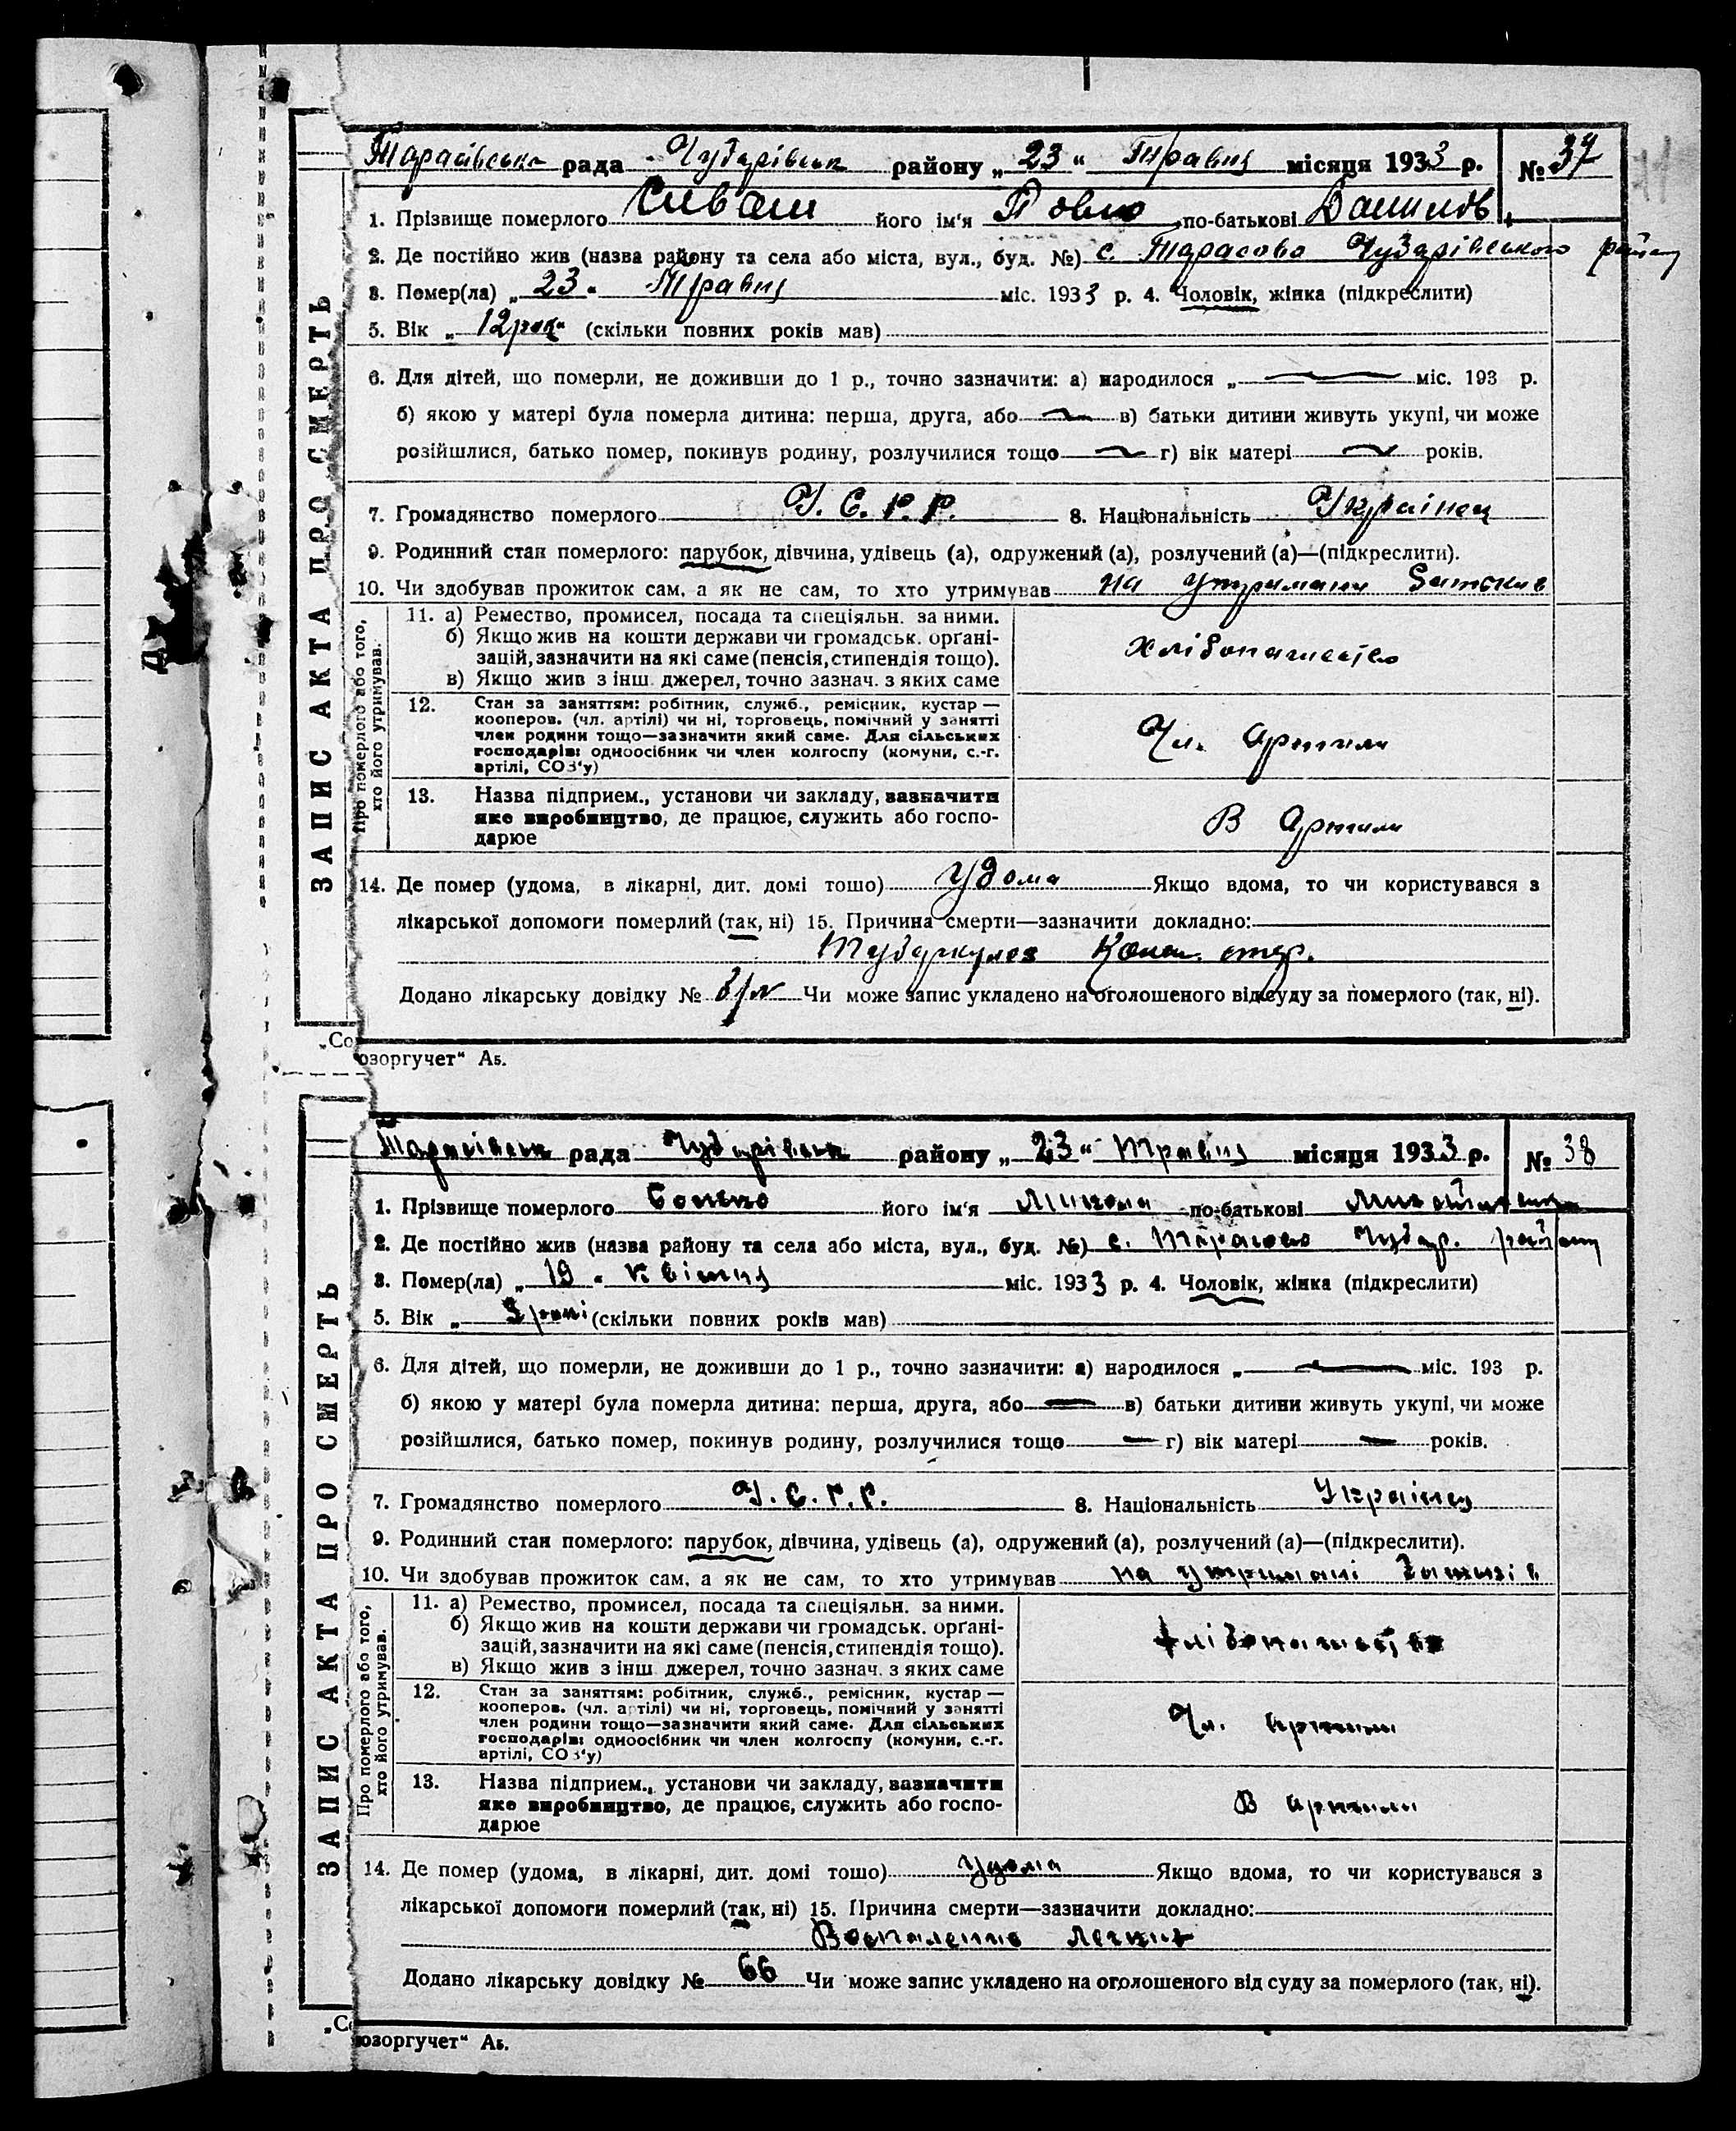 Тарасівська рада Чубарівськ району „ 23 “ Травня місяця 1933 р. № 37
1. Прізвище померлого Сиваш його ім'я Павло по-батькові Данилов
2. Де постійно жив (назва району та села або міста, вул., буд. №) с. Тарасово Чубарівського району
3. Помер(ла) „ 23 “ Травня міс. 1933 р. 4. Чоловік, жінка (підкреслити)
5. Вік „ 12 рок (скільки повних років мав)
6. Для дітей, що померли, не доживши до 1 р., точно зазначити: а) народилося „ міс. 193 р.
б) якою у матері була померла дитина: перша, друга, або в) батьки дитини живуть укупі, чи може
розійшлися, батько помер, покинув родину, розлучилися тощо г) вік матері років.
7. Громадянство померлого У.С.Р.Р. 8. Національність Українец
9. Родинний стан померлого: парубок, дівчина, удівець (а), одружений (а), розлучений (а)—(підкреслити).
10. Чи здобував прожиток сам, а як не сам, то хто утримував на утримани батьків
ЗАПИС АКТА ПРО СМЕРТЬ
Про померлого або того,
хто його утримував.
11. а) Ремество, промисел, посада та спеціяльн. за ними.
б) Якщо жив на кошти держави чи громадськ. орґані-
зацій, зазначити на які саме (пенсія, стипендія тощо).
в) Якщо жив з інш. джерел, точно зазнач. з яких саме
хлібопашество
12. Стан за заняттям: робітник, служб., ремісник, кустар —
кооперов. (чл. артілі) чи ні, торговець, помічний у занятті
член родини тощо—зазначити який саме. Для сільських
господарів: одноосібник чи член колгоспу (комуни, с.-г.
артілі, СОЗ'у)
Чл. Артили
13. Назва підприєм., установи чи закладу, зазначити
яке виробництво, де працює, служить або госпо-
дарює
В Артили
14. Де помер (удома, в лікарні, дит. домі тощо) Удома Якщо вдома, то чи користувався з
лікарської допомоги померлий (так, ні) 15. Причина смерти—зазначити докладно:
Туберкулез
Додано лікарську довідку № Чи може запис укладено на оголошеного від суду за померлого (так, ні).
„Союзоргучет“ Аб.
Тарасівськ рада Чубарівськ району „ 23 “ Травня місяця 1933 р. № 38
1. Прізвище померлого його ім'я Микола по-батькові
2. Де постійно жив (назва району та села або міста, вул., буд. №) с. Тарасово Чубар. району
3. Помер(ла) „ 19 “ Квітня міс. 1933 р. 4. Чоловік, жінка (підкреслити)
5. Вік „ 3 роки (скільки повних років мав)
6. Для дітей, що померли, не доживши до 1 р., точно зазначити: а) народилося „ міс. 193 р.
б) якою у матері була померла дитина: перша, друга, або в) батьки дитини живуть укупі, чи може
розійшлися, батько помер, покинув родину, розлучилися тощо г) вік матері років.
7. Громадянство померлого У.С.Р.Р. 8. Національність Українец
9. Родинний стан померлого: парубок, дівчина, удівець (а), одружений (а), розлучений (а)—(підкреслити).
10. Чи здобував прожиток сам, а як не сам, то хто утримував на утримані батьків
ЗАПИС АКТА ПРО СМЕРТЬ
Про померлого або того,
хто його утримував.
11. а) Ремество, промисел, посада та спеціяльн. за ними.
б) Якщо жив на кошти держави чи громадськ. орґані-
зацій, зазначити на які саме (пенсія, стипендія тощо).
в) Якщо жив з інш. джерел, точно зазнач. з яких саме
хлібопашество
12. Стан за заняттям: робітник, служб., ремісник, кустар —
кооперов. (чл. артілі) чи ні, торговець, помічний у занятті
член родини тощо—зазначити який саме. Для сільських
господарів: одноосібник чи член колгоспу (комуни, с.-г.
артілі, СОЗ'у)
Чл. Артили
13. Назва підприєм., установи чи закладу, зазначити
яке виробництво, де працює, служить або госпо-
дарює
В Артили
14. Де помер (удома, в лікарні, дит. домі тощо) Удома Якщо вдома, то чи користувався з
лікарської допомоги померлий (так, ні) 15. Причина смерти—зазначити докладно:
Воспаление легких
Додано лікарську довідку № 66 Чи може запис укладено на оголошеного від суду за померлого (так, ні).
„Союзоргучет“ Аб.